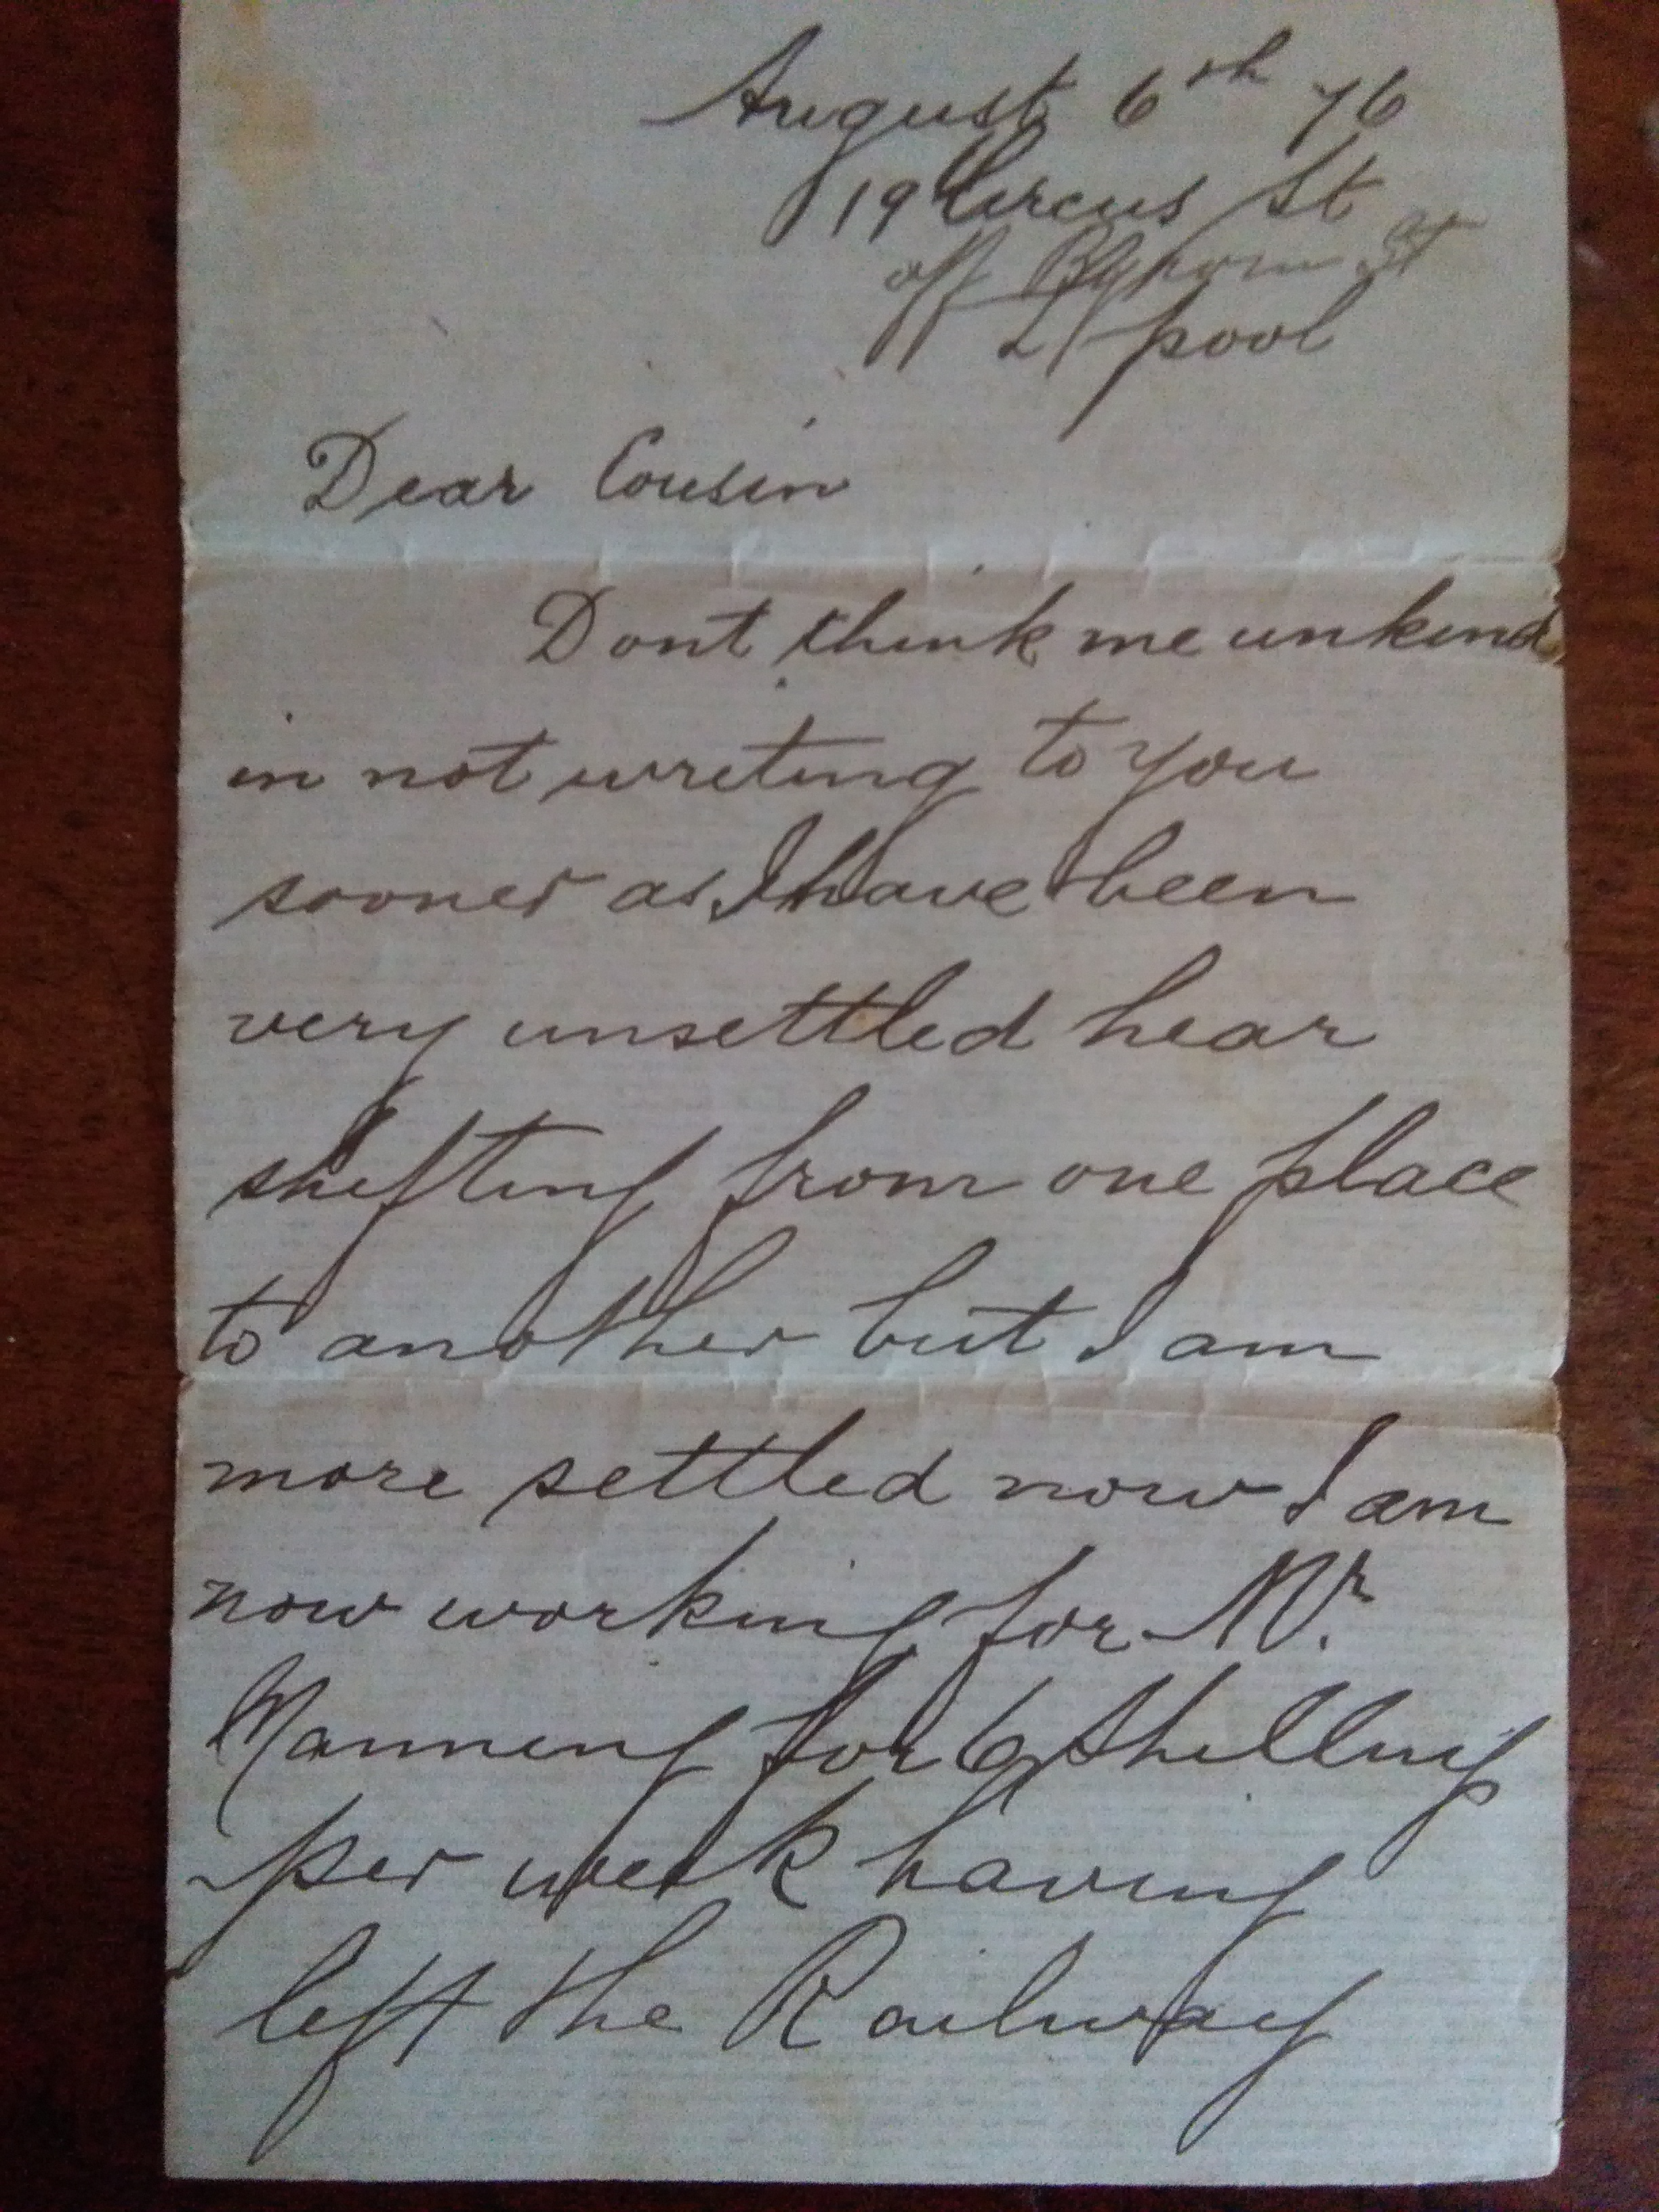 August 6th 76
19 Circus St
off Byrom St
L/pool
Dear Cousin
Dont think me unkind
in not writing to you
sooner as I have been
very unsettled hear
shifting from one place
to another but I am
more settled now I am
now working for Mr.
Manning for 6 shillings
per week having
left the Railway